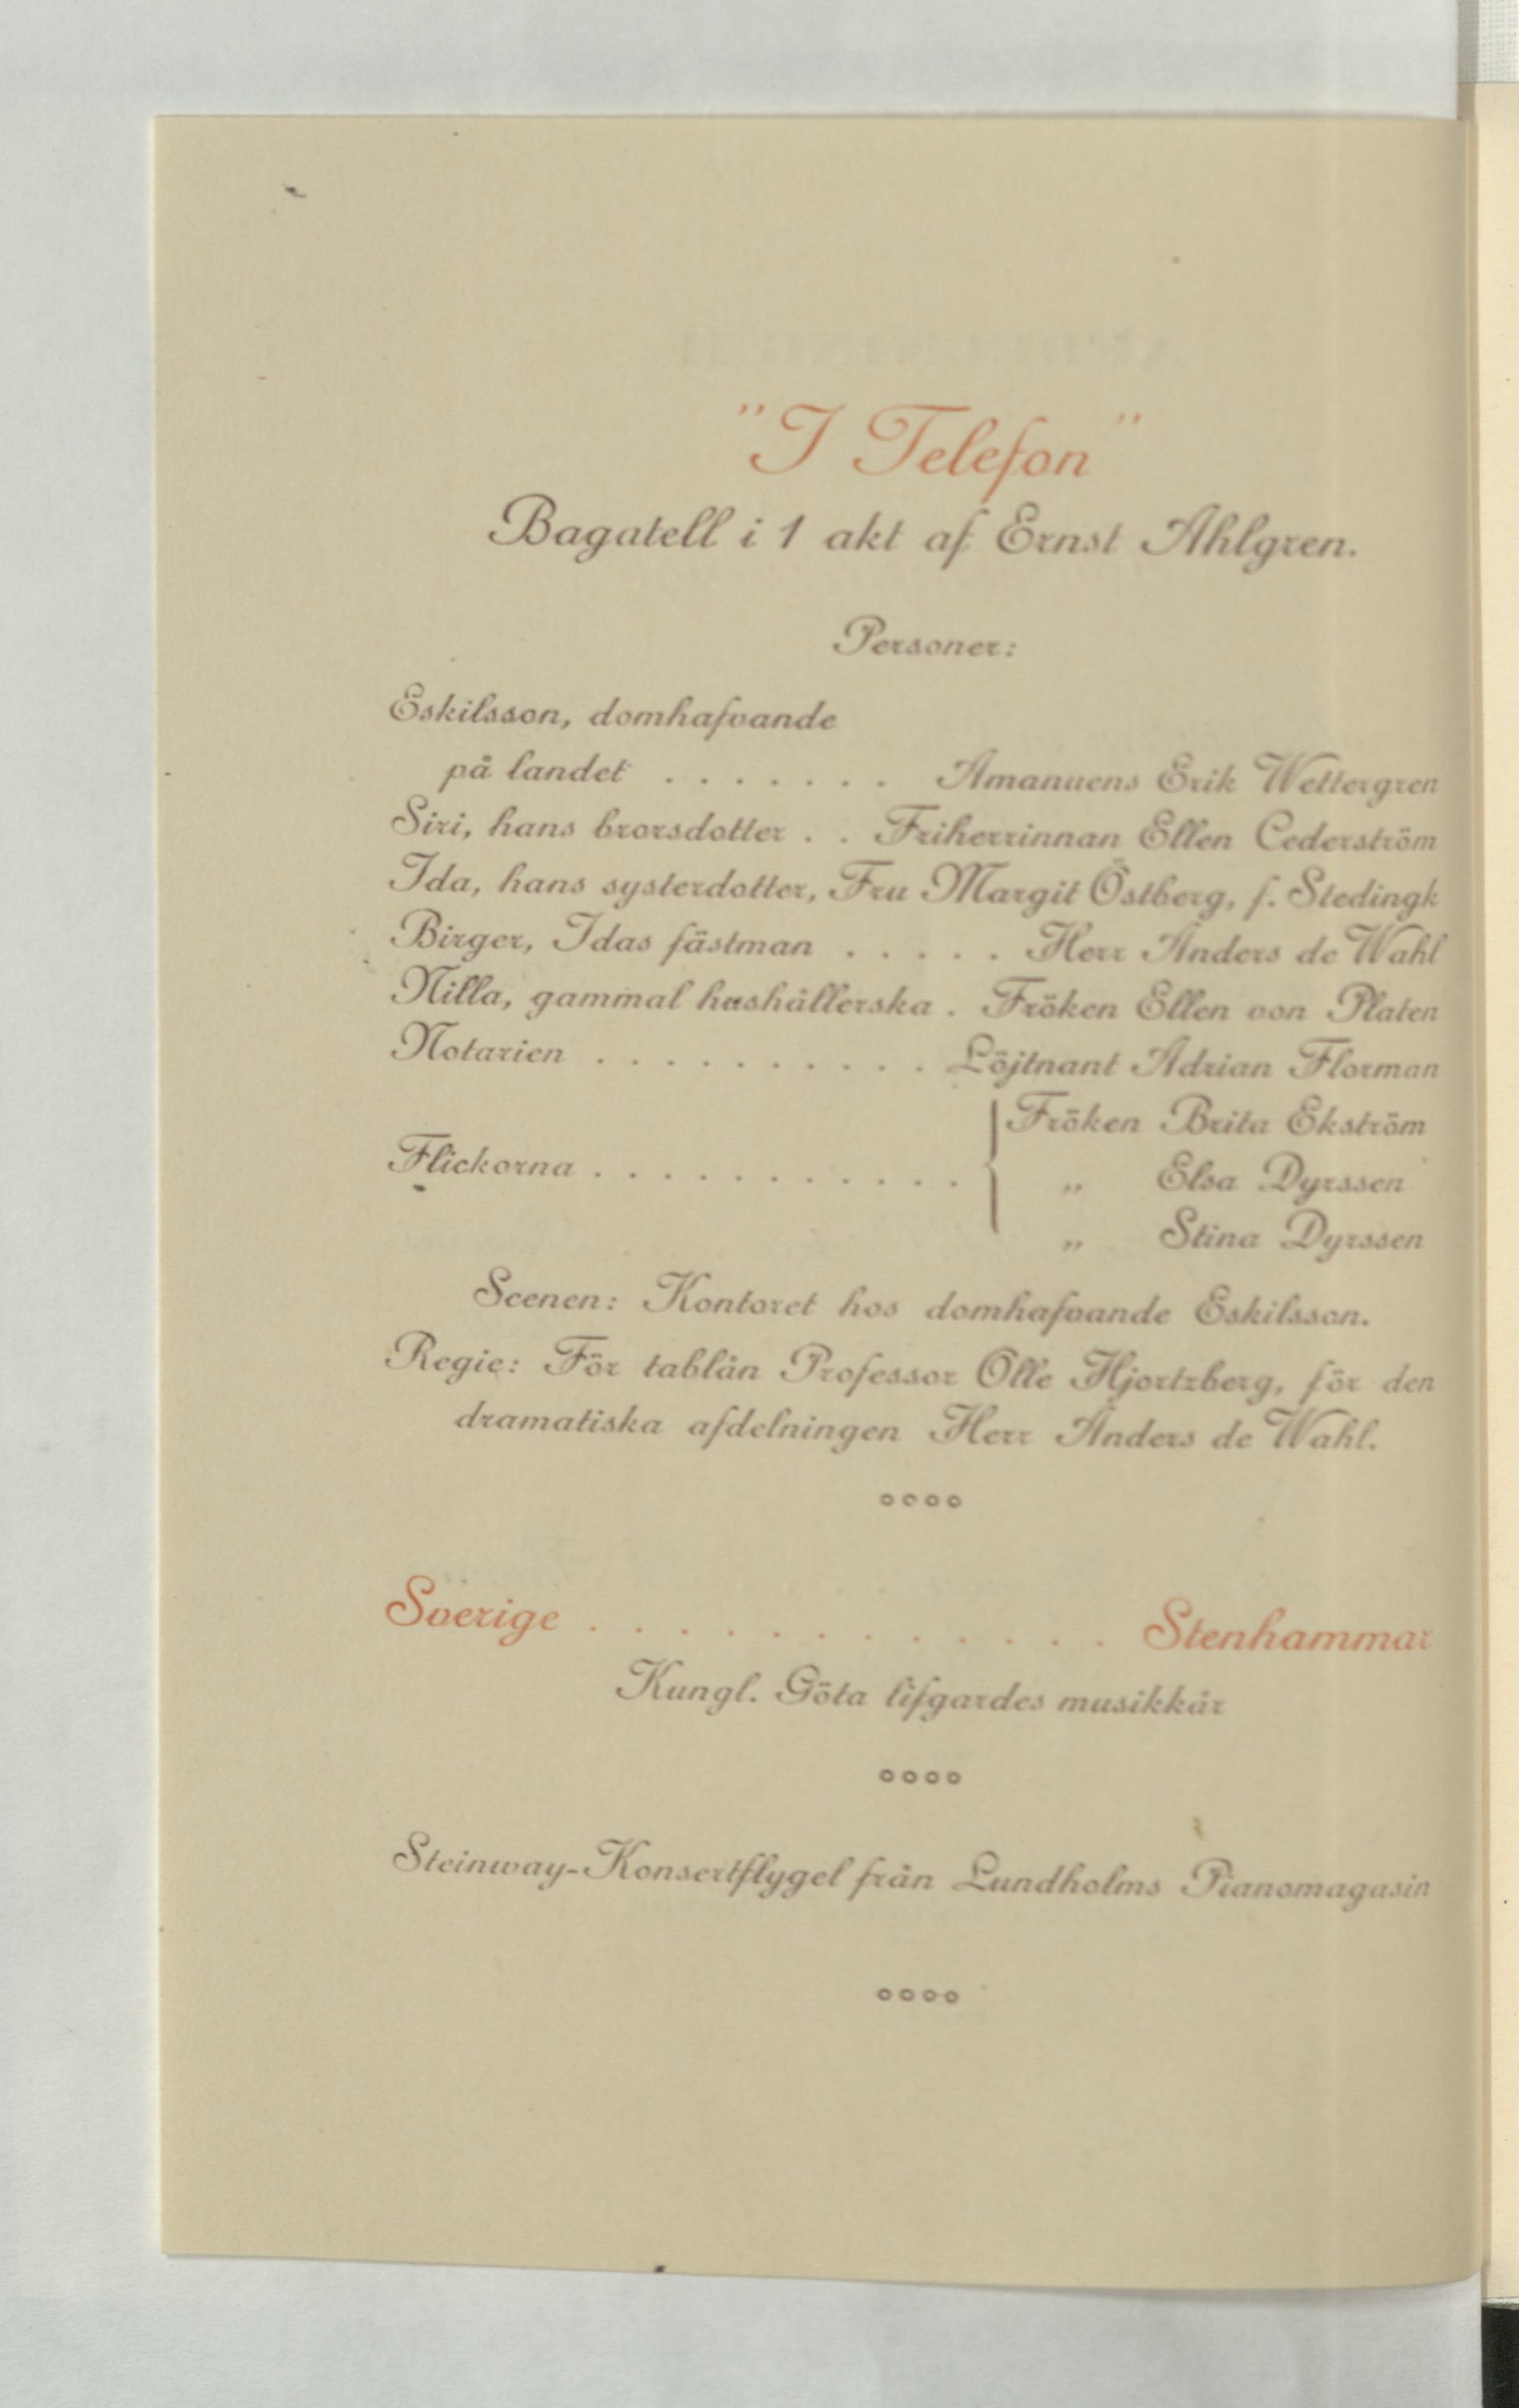 "I Telefon"
Bagatell i 1 akt af Ernst Ahlgren.
Personer:
Eskilsson, domhafvande
på landet . . . . . . . Amanuens Erik Wettergren
Siri, hans brorsdotter . . Friherrinnan Ellen Cederström
Ida, hans systerdotter, Fru Margit Östberg, f. Stedingk
Birger, Idas fästman . . . . . Herr Anders de Wahl
Nilla, gammal hushållerska . Fröken Ellen von Platen
Notarien . . . . . . . . . . Löjtnant Adrian Florman
Fröken Brita Ekström
Flickorna . . . . . . . . . . . „ Elsa Dyrssen
„ Stina Dyrssen
Scenen: Kontoret hos domhafvande Eskilsson.
Regie: För tablån Professor Olle Hjortzberg, för den
dramatiska afdelningen Herr Anders de Wahl.
Sverige . . . . . . . . . . . . Stenhammar
Kungl. Göta lifgardes musikkår
Steinway-Konsertflygel från Lundholms Pianomagasin